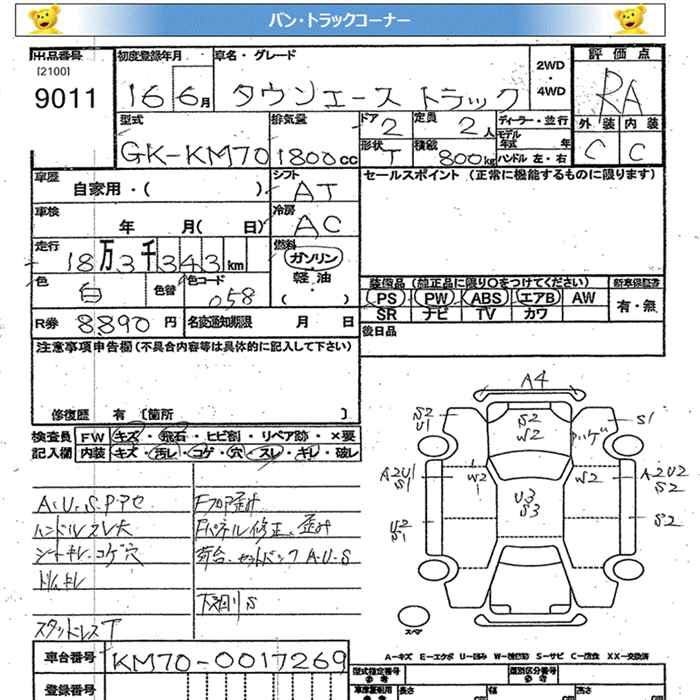 バン・トラックコーナー
出品番号 初度登録年月 車名・グレード 2WD・4WD 評価点
[2100]
9011 16 6月 タウンエース トラック RA
型式 排気量 ドア 2 定員 2人 ディーラー・並行 外装 内装
GK-KM70 1800cc 形状 T 積載 800kg モデル年式 年 ハンドル 左・右 C C
車歴 シフト セールスポイント (正常に機能するものに限ります)
自家用・( ) AT
車検 冷房
年 月( 日) AC
走行 燃料
18万3千343km ガソリン・軽油・( )
色 色替 色コード 装備品 (純正品に限り○をつけてください) 新車保証書
白 058 PS PW ABS エアB AW 有・無
SR ナビ TV カワ
R券 8890円 名変通知期限 月 日 後日品
注意事項申告欄 (不具合内容等は具体的に記入して下さい)
修復歴 有 [箇所 ]
検査員 FW キズ・飛石・ヒビ割・リペア跡・×要
記入欄 内装 キズ・汚レ・コゲ・穴・スレ・キレ・破レ
A4
S2 U1
S2 W2
S1
A2U1 S1
W2
U3 S3
S2
A2U2 S2
U2 S1
S2
スペア
A・U・S・P・アセ Fフロア歪み
ハンドルスレ大 Fパネル修正、歪み
シートキレ・コゲ穴 荷台・A・U・S
トリムキレ
下回りS
スタッドレスT
A-キズ E-エクボ U-凹み W-補修跡 S-サビ C-腐食 XX-交換済
車台番号 KM70-0017269
登録番号
型式指定番号 類別区分番号
長さ cm 幅 cm 高さ cm